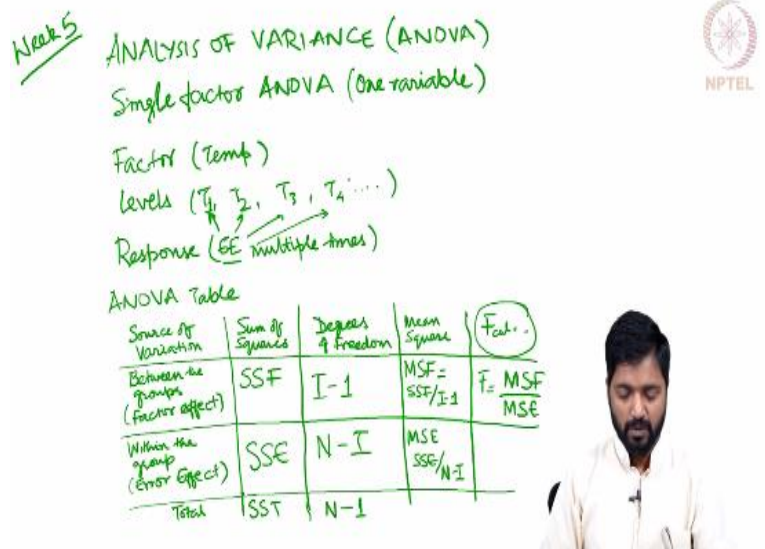 Week 5
ANALYSIS OF VARIANCE (ANOVA)
NPTEL
Single factor ANOVA (One variable)
Factor (Temp)
Levels (T1, T2, T3, T4 ....)
Response (EE multiple times)
ANOVA Table
Source of Variation | Sum of Squares | Degrees of Freedom | Mean Square | Fcal..
Between the groups (Factor effect) | SSF | I-1 | MSF = SSF/I-1 | F = MSF/MSE
Within the group (Error Effect) | SSE | N-I | MSE SSE/N-I
Total | SST | N-1